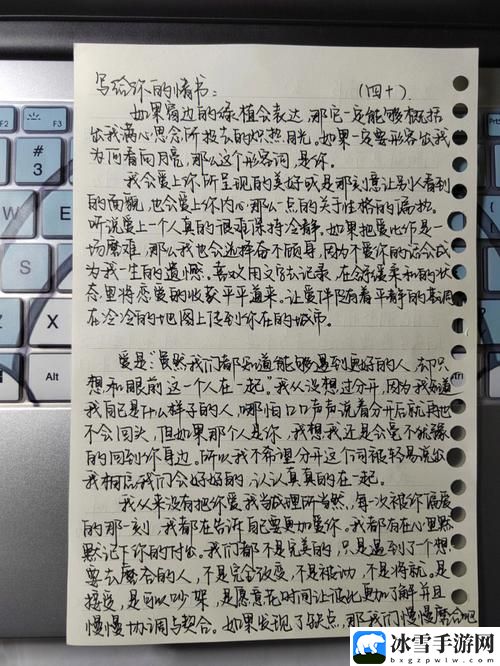 写给你的情书：（四十）
如果窗边的绿植会表达，那它一定能够概括
出我满心思念所投去的炽热目光。如果一定要形容出我
为何看向月亮，那么这个形容词，是你。
我会爱上你所呈现的美好或是那刻意让别人看到
的面貌，也会爱上你内心那么一点的关于性格的偏执。
听说爱上一个人真的很难保持冷静，如果把爱比作是一
场磨难，那么我也会选择奋不顾身，因为不爱你的话会成
为我一生的遗憾。喜欢用文字去记录，在舒缓柔和的状
态里将恋爱的收获平平道来。让爱伴随着平静的基调
在冷冷的地图上传到你在的城市。
爱是：“虽然我们都知道能够遇到更好的人，却只
想和眼前这一个人在一起。”我从没想过分开，因为我知道
我自己是什么样子的人，哪怕口口声声说着分开后就再也
不会回头，但如果那个人是你，我想我还是会毫不犹豫
的回到你身边。所以我不希望分开这个词被轻易说出
我相信我们会好好的，认认真真的在一起。
我从来没有把你爱我当成理所当然，每一次被你偏爱
的那一刻，我都在告诉自己要更加爱你。我都有在心里默
默记下你的付出。我们都不是完美的，只是遇到了个想
要去磨合的人，不是完全改变，不是被动，不是将就。是
接受，是可以吵架，是愿意花时间让彼此更加了解并且
慢慢协调与契合。如果发现了缺点，那我们慢慢磨合吧
F2
F3
#
3
E
冰雪手游网
bxgzpwlw.com